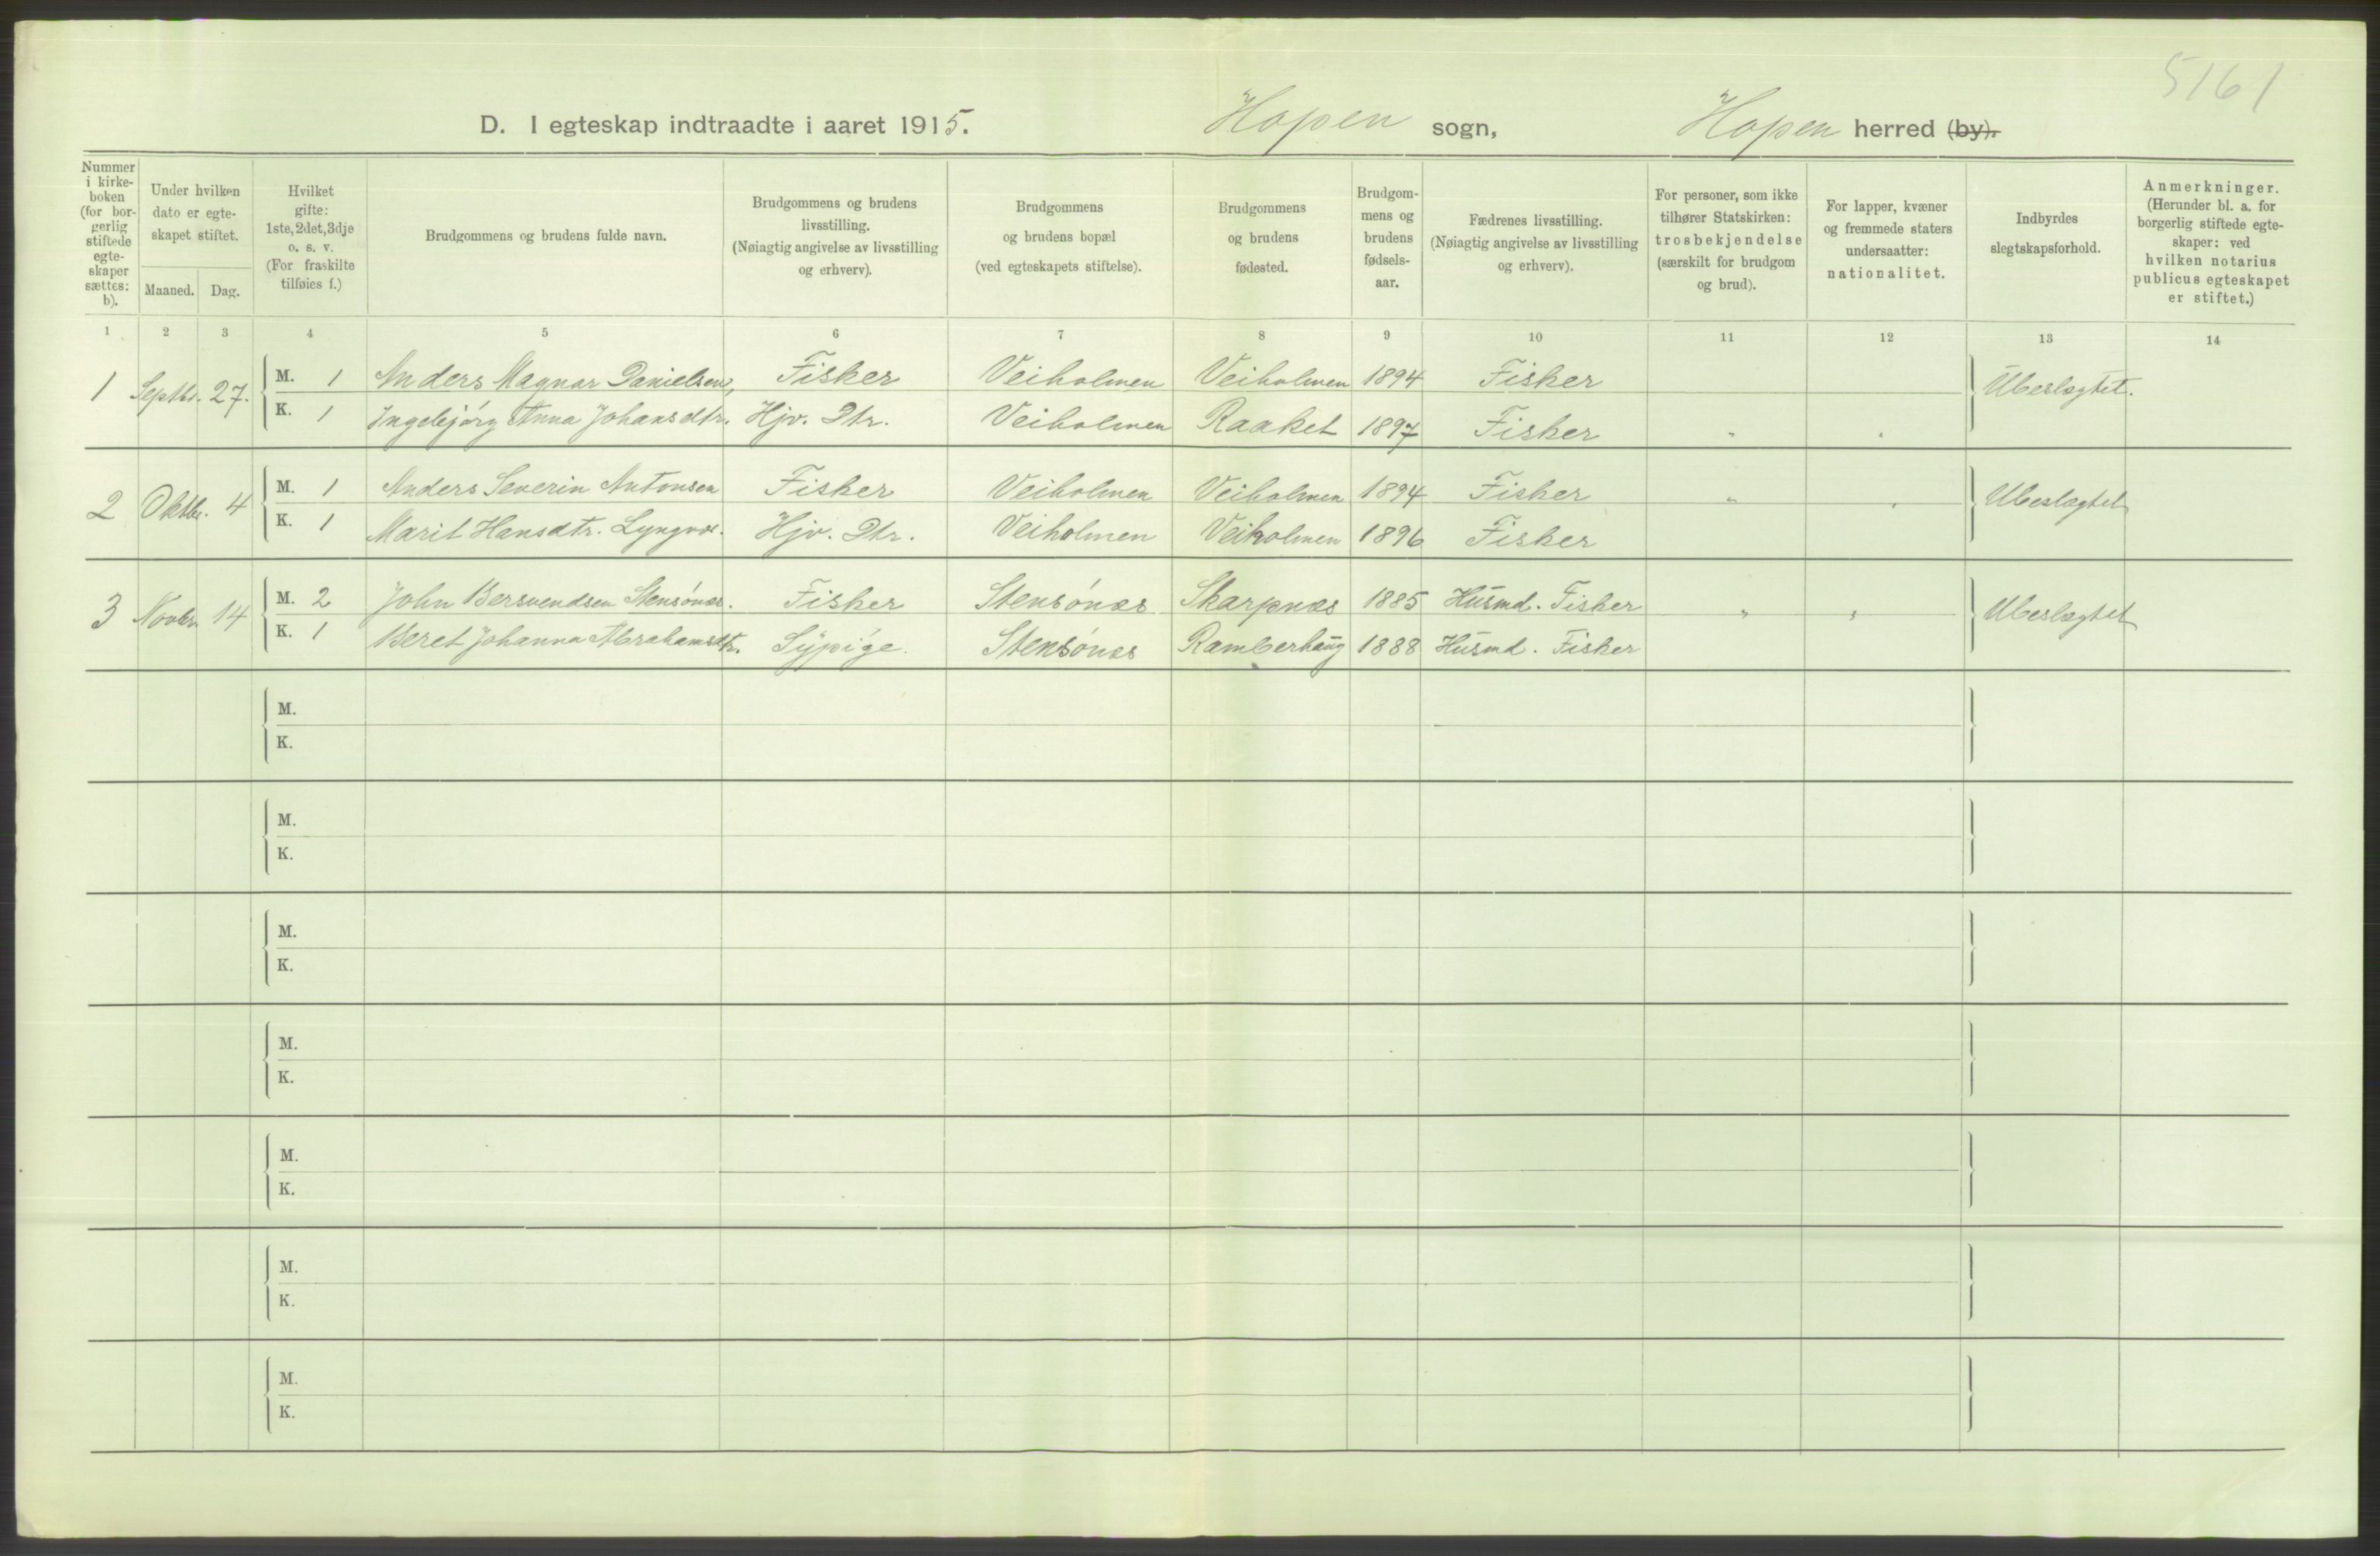 5161
D. I egteskap indtraadte i aaret 1915. Hopen sogn, Hopen herred (by).
Nummer i kirkeboken (for borgerlig stiftede egteskaper sættes: b).
Under hvilken dato er egteskapet stiftet.
Maaned. Dag.
Hvilket gifte: 1ste, 2det, 3dje o. s. v. (For fraskilte tilføies f.)
Brudgommens og brudens fulde navn.
Brudgommens og brudens livsstilling. (Nøiagtig angivelse av livsstilling og erhverv).
Brudgommens og brudens bopæl (ved egteskapets stiftelse).
Brudgommens og brudens fødested.
Brudgommens og brudens fødselsaar.
Fædrenes livsstilling. (Nøiagtig angivelse av livsstilling og erhverv).
For personer, som ikke tilhører Statskirken: trosbekjendelse (særskilt for brudgom og brud).
For lapper, kvæner og fremmede staters undersaatter: nationalitet.
Indbyrdes slegtskapsforhold.
Anmerkninger. (Herunder bl. a. for borgerlig stiftede egteskaper: ved hvilken notarius publicus egteskapet er stiftet.)
1 2 3 4 5 6 7 8 9 10 11 12 13 14
1 Septbr. 27. M. 1 Anders Magnar Danielsen, Fisker Veiholmen Veiholmen 1894 Fisker Ubeslægtet.
K. 1 Ingebjørg Anna Johansdtr. Hjv. Dtr. Veiholmen Raaket 1897 Fisker " "
2 Oktbr. 4 M. 1 Anders Severin Antonsen Fisker Veiholmen Veiholmen 1894 Fisker " " Ubeslægtet
K. 1 Marit Hansdtr. Lyngvær. Hjv. Dtr. Veiholmen Veiholmen 1896 Fisker
3 Novbr. 14 M. 2 John Bersvendsen Stensönæs. Fisker Stensönæs Skarpnæs 1885 Husmd. Fisker " " Ubeslægtet
K. 1 Beret Johanna Abrahamsdtr. Sypige. Stensönæs Ramberhaug 1888 Husmd. Fisker
M.
K.
M.
K.
M.
K.
M.
K.
M.
K.
M.
K.
M.
K.